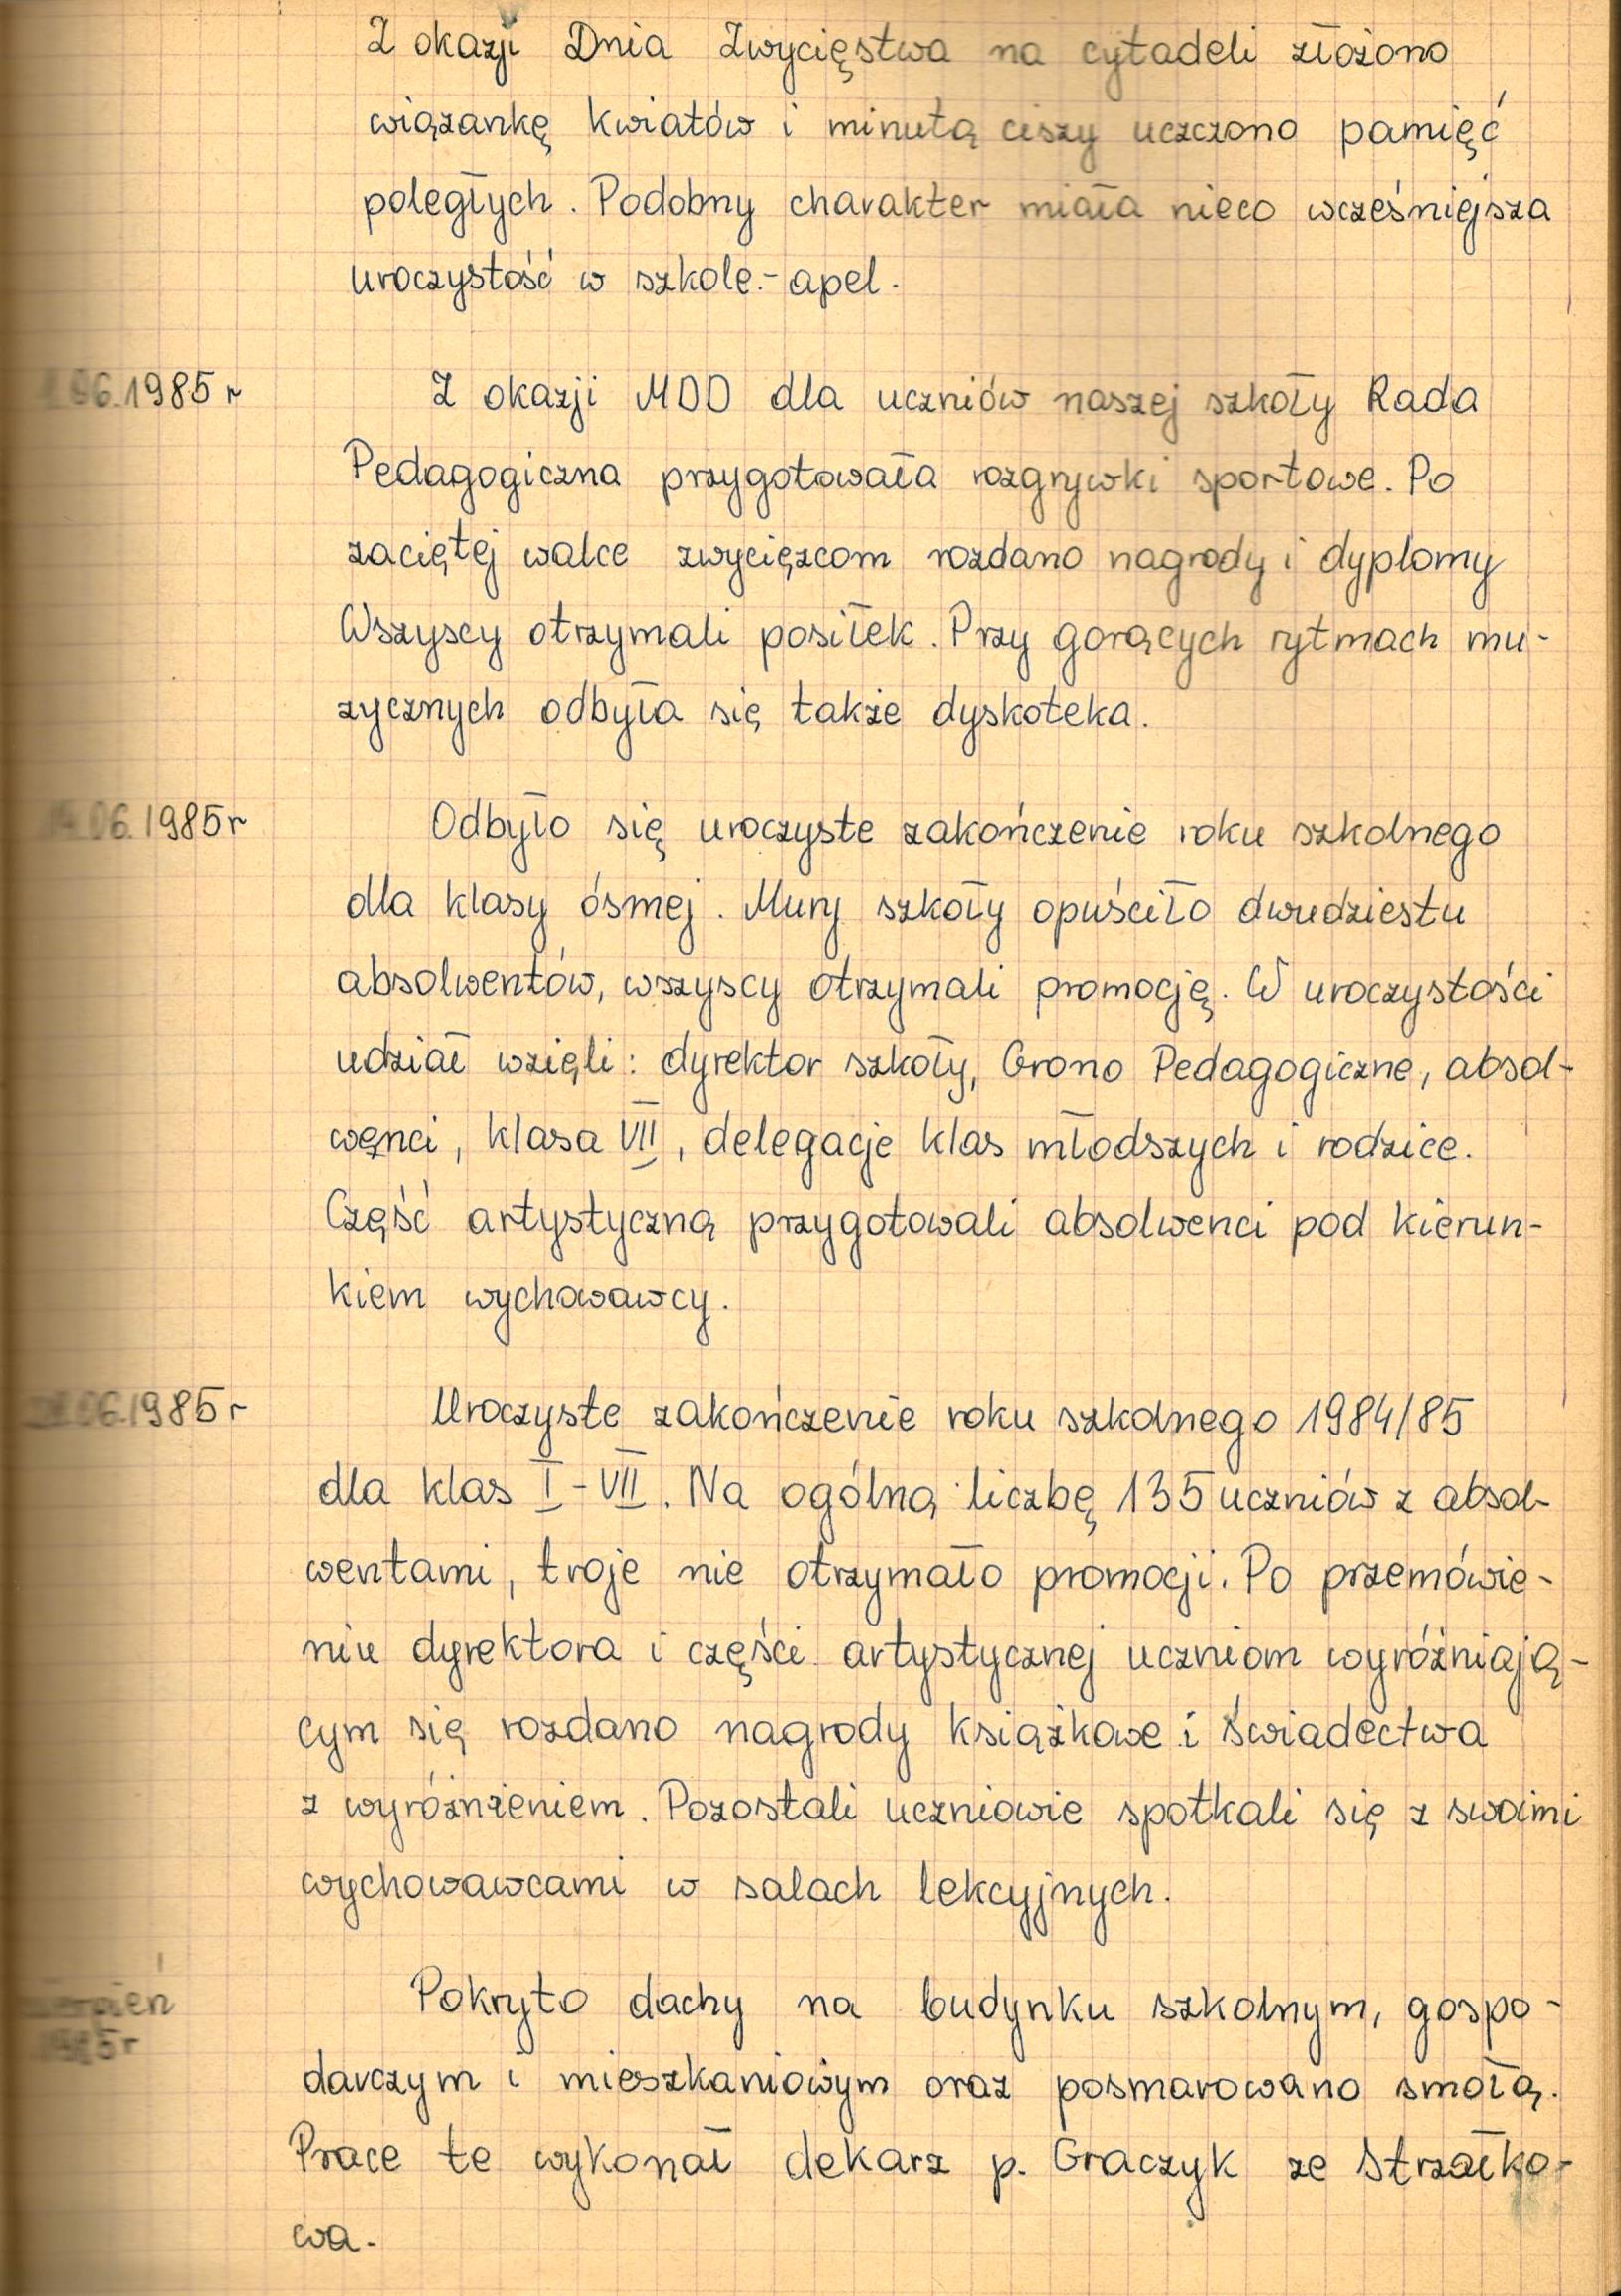 Z okazji Dnia Zwycięstwa na cytadeli złożono
wiązankę kwiatów i minutą ciszy uczczono pamięć
poległych. Podobny charakter miała nieco wcześniejsza
uroczystość w szkole - apel.
06.1985 r
Z okazji MDD dla uczniów naszej szkoły Rada
Pedagogiczna przygotowała rozgrywki sportowe. Po
zaciętej walce zwycięzcom rozdano nagrody i dyplomy
Wszyscy otrzymali posiłek. Przy gorących rytmach mu-
zycznych odbyła się także dyskoteka.
06.1985 r
Odbyło się uroczyste zakończenie roku szkolnego
dla klasy ósmej. Mury szkoły opuściło dwudziestu
absolwentów, wszyscy otrzymali promocję. W uroczystości
udział wzięli: dyrektor szkoły, Grono Pedagogiczne, absol-
wenci, klasa VII, delegacje klas młodszych i rodzice.
Część artystyczną przygotowali absolwenci pod kierun-
kiem wychowawcy.
06.1985 r
Uroczyste zakończenie roku szkolnego 1984/85
dla klas I-VII. Na ogólną liczbę 135 uczniów z absol-
wentami, troje nie otrzymało promocji. Po przemówie-
niu dyrektora i części artystycznej uczniom wyróżniają-
cym się rozdano nagrody książkowe i świadectwa
z wyróżnieniem. Pozostali uczniowie spotkali się z swoimi
wychowawcami w salach lekcyjnych.
sierpień
1985 r
Pokryto dachy na budynku szkolnym, gospo-
darczym i mieszkaniowym oraz posmarowano smołą.
Prace te wykonał dekarz p. Graczyk ze Strzałko-
wa.